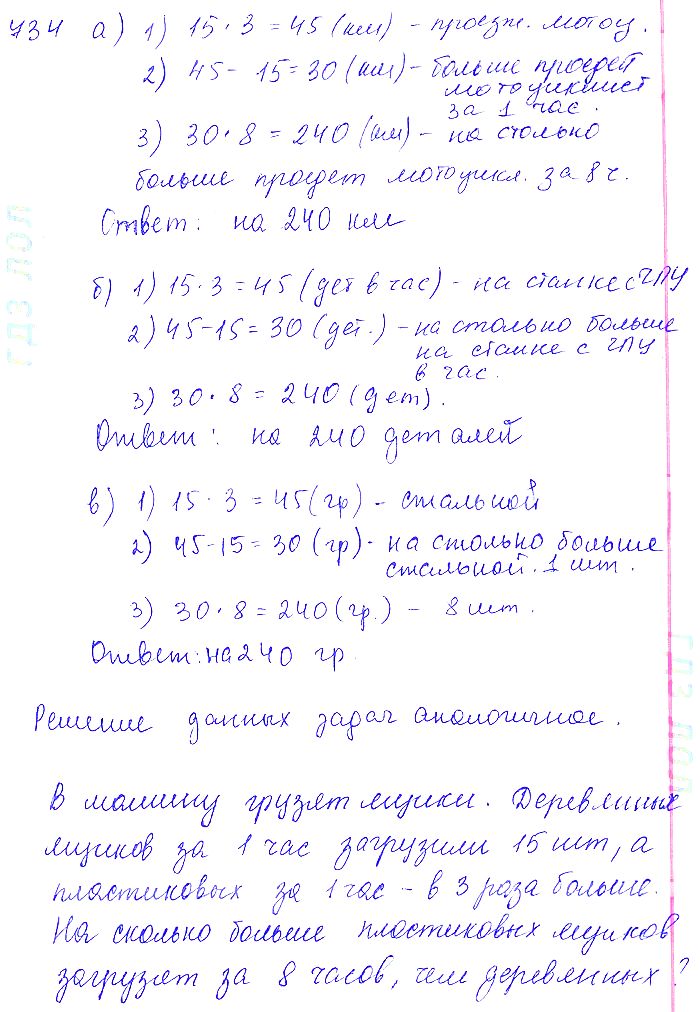 734 а) 1) 15 · 3 = 45 (км) - проезж. мотоц.
2) 45 - 15 = 30 (км) - больше проедет
мотоциклист
за 1 час.
3) 30 · 8 = 240 (км) - на столько
больше проедет мотоцикл. за 8 ч.
Ответ: на 240 км
б) 1) 15 · 3 = 45 (дет в час) - на станке с ЧПУ
2) 45 - 15 = 30 (дет.) - на столько больше
на станке с ЧПУ
в час.
3) 30 · 8 = 240 (дет).
Ответ: на 240 деталей
в) 1) 15 · 3 = 45 (гр) - стальной
2) 45 - 15 = 30 (гр) - на столько больше
стальной. 1 шт.
3) 30 · 8 = 240 (гр.) - 8 шт.
Ответ: на 240 гр.
Решение данных задач аналогичное.
В машину грузят ящики. Деревянных
ящиков за 1 час загрузили 15 шт, а
пластиковых за 1 час - в 3 раза больше.
На сколько больше пластиковых ящиков
загрузят за 8 часов, чем деревянных?
ГДЗ ЛОЛ
ГДЗ ЛОЛ